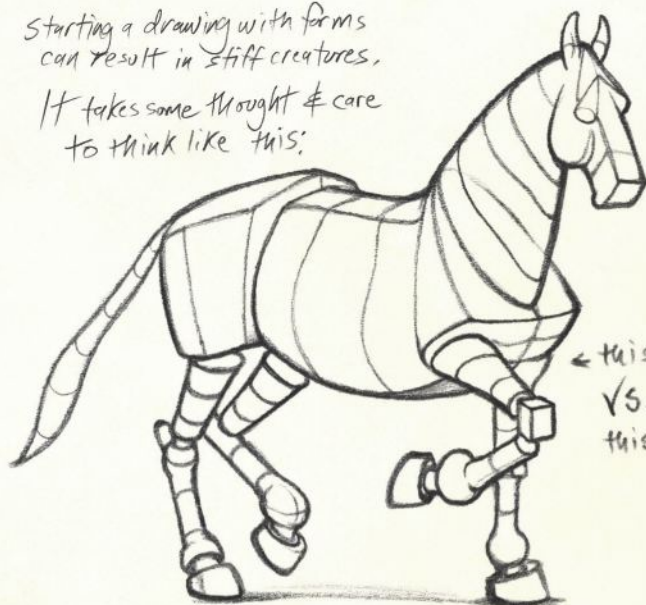 starting a drawing with forms
can result in stiff creatures.
It takes some thought & care
to think like this:
← this
VS.
this